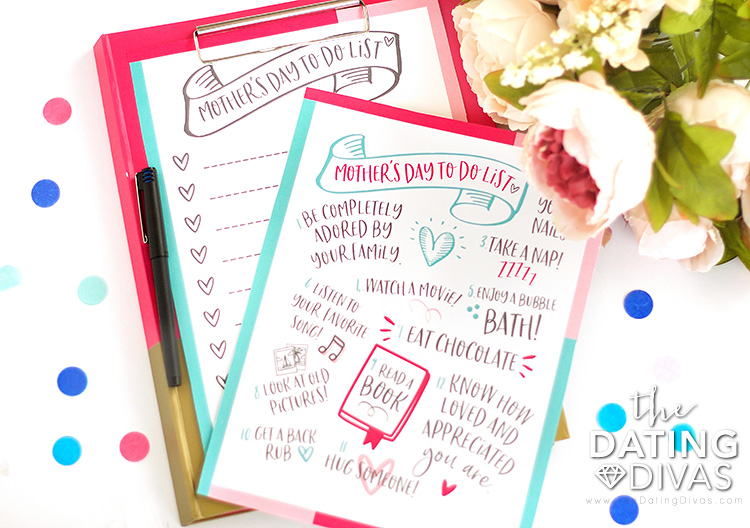 MOTHER'S DAY TO DO LIST
MOTHER'S DAY TO DO LIST
1. BE COMPLETELY
ADORED BY
YOUR FAMILY.
YOU
NAILS
3. TAKE A NAP!
ZZZZZ
4. WATCH A MOVIE!
5. ENJOY A BUBBLE
BATH!
6. LISTEN TO
YOUR FAVORITE
SONG!
7. EAT CHOCOLATE
8. LOOK AT OLD
PICTURES!
9. READ A
BOOK
10. GET A BACK
RUB
11.
HUG SOMEONE!
12. KNOW HOW
LOVED AND
APPRECIATED
you are.
the
DATING
DIVAS
www.theDatingDivas.com